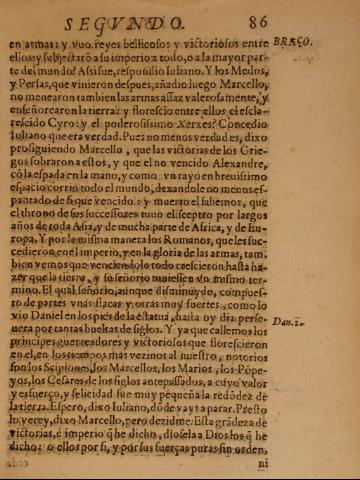 SEGVNDO. 86
en armas: y vuo reyes bellicosos y victoriosos entre
BRAÇO.
ellos y subjectarõ a su imperio a todo, o a la mayor par-
te del mundo? Assi fue, respondio Iuliano. Y los Medos,
y Persas, que vinieron despues, añadio luego Marcello,
no menearon tambien las armas assaz valerosamente, y
enseñorearon la tierra: y florescio entre ellos el escla-
rescido Cyro: y el poderosissimo Xerxes? Concedio
Iuliano que era verdad. Pues no menos verdad es, dixo
prosiguiendo Marcello, que las victorias de los Grie-
gos sobraron a estos, y que el no vencido Alexandre,
cõ la espada en la mano, y como vn rayo en breuissimo
espacio corrio todo el mundo, dexandole no menos es-
pantado de si que vencido: y muerto el sabemos, que
el throno de sus successores tuuo el sceptro por largos
años de toda Asia, y de mucha parte de Africa, y de Eu-
ropa. Y por la misma manera los Romanos, que les suc-
cedieron en el imperio, y en la gloria de las armas, tam
bien vemos que venciendolo todo crescieron hasta ha-
zer que la tierra, y su señorio tuuiessen vn mismo ter-
mino. El qual señorio, aunque disminuydo, compues-
to de partes vnas flacas y otras muy fuertes, como lo
vio Daniel en los pies de la estatua, hasta oy dia perse-
Dan. 2.
uera por tantas bueltas de siglos. Y ya que callemos los
principes guerreadores y victoriosos que florescieron
en el, en los tiempos mas vezinos al nuestro, notorios
son los Scipiones, los Marcellos, los Marios, los Põpe-
yos, los Cesares de los siglos antepassados, a cuyo valor
y esfuerço, y felicidad fue muy pequeña la redõdez de
la tierra. Espero, dixo Iuliano, dõde vays a parar. Presto
lo vereys, dixo Marcello, pero dezidme: Esta grãdeza de
victorias, e imperio q̃ he dicho, diosela a Dios los q̃ he
dicho: o ellos por si, y por sus fuerças puras sin orden,
ni